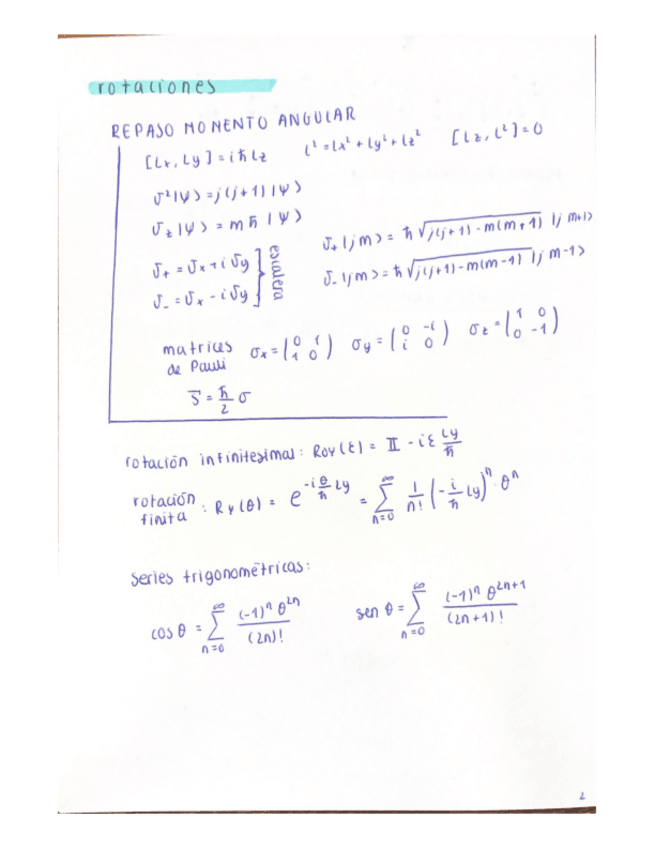 rotaciones
REPASO MOMENTO ANGULAR
[Lx, Ly] = iħLz   L² = Lx² + Ly² + Lz²   [Lz, L²] = 0
J²|ψ> = j(j+1)|ψ>
Jz|ψ> = mħ|ψ>
J+ = Jx + iJy
J- = Jx - iJy
escalera
J+|jm> = ħ√j(j+1)-m(m+1) |j m+1>
J-|jm> = ħ√j(j+1)-m(m-1) |j m-1>
matrices de Pauli   σx = (0 1; 1 0)   σy = (0 -i; i 0)   σz = (1 0; 0 -1)
S = ħ/2 σ
rotación infinitesimal: Roy(ε) = II - iε Ly/ħ
rotación finita : Ry(θ) = e^(-i θ/ħ Ly) = ∑_{n=0}^{∞} 1/n! (-i/ħ Ly)ⁿ · θⁿ
series trigonométricas:
cos θ = ∑_{n=0}^{∞} (-1)ⁿ θ²ⁿ / (2n)!   sen θ = ∑_{n=0}^{∞} (-1)ⁿ θ²ⁿ⁺¹ / (2n+1)!
2